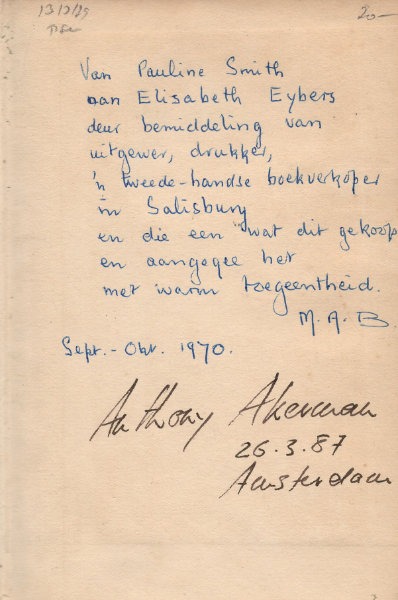 20-
Van Pauline Smith
aan Elisabeth Eybers
deur bemiddeling van
uitgewer, drukker,
'n tweede-handse boekverkoper
in Salisbury
en die een wat dit gekoop
en aangegee het
met warm toegeentheid.
M. A. B.
Sept. - Okt. 1970.
Anthony Akerman
26.3.87
Amsterdam